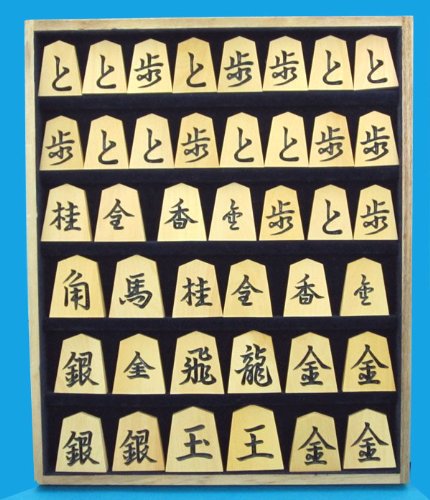 と と 歩 と 歩 歩 と と
歩 と と 歩 と と 歩 歩
桂 全 香 圭 歩 と 歩
角 馬 桂 全 香
銀 全 飛 龍 金 金
銀 銀 玉 王 金 金